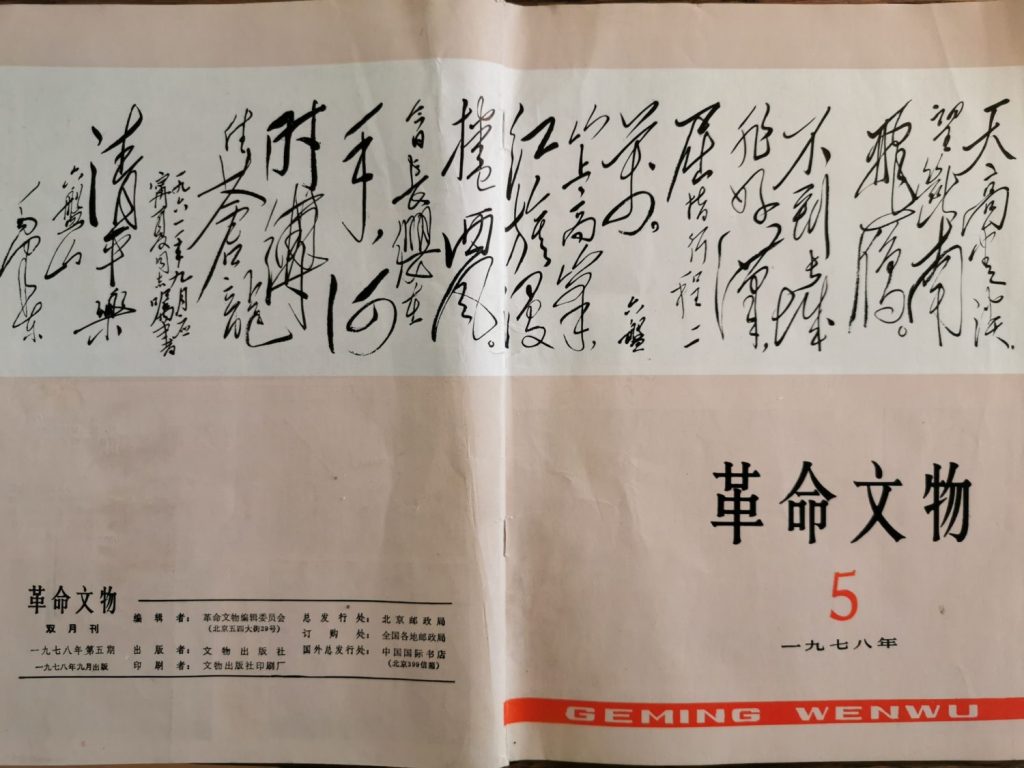 天高雲淡.
望斷南
飛雁。
不到長城
非好漢,
屈指行程二
萬。
六盤
山上高峯,
紅旗漫
捲西風。
今日長纓在
手,
何
時縛
住蒼龍
一九六一年九月應
寧夏同志嘱書
清平樂
六盤山
毛澤東
革命文物
5
一九七八年
GEMING WENWU
革命文物
双月刊
一九七八年第五期
一九七八年九月出版
编辑者：革命文物编辑委员会
(北京五四大街29号)
出版者：文物出版社
印刷者：文物出版社印刷厂
总发行处：北京邮政局
订购处：全国各地邮政局
国外总发行处：中国国际书店
(北京399信箱)